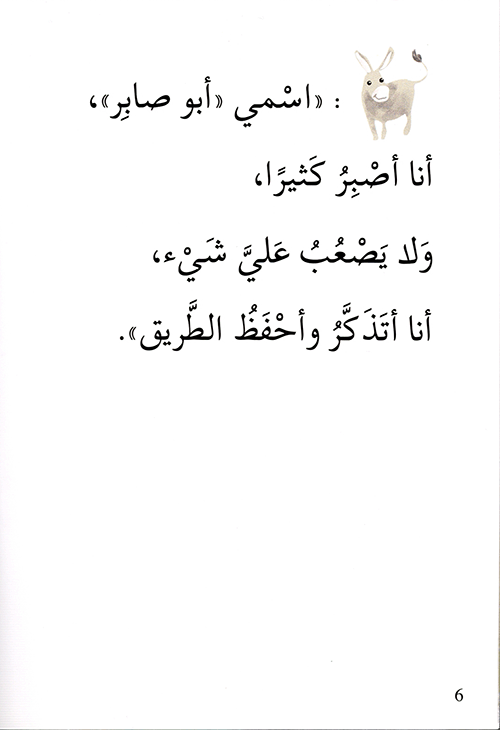 : «اسْمي «أبو صابِر»،
أنا أصْبِرُ كَثيرًا،
وَلا يَصْعُبُ عَليَّ شَيْء،
أنا أتَذَكَّرُ وأحْفَظُ الطَّريق».
6